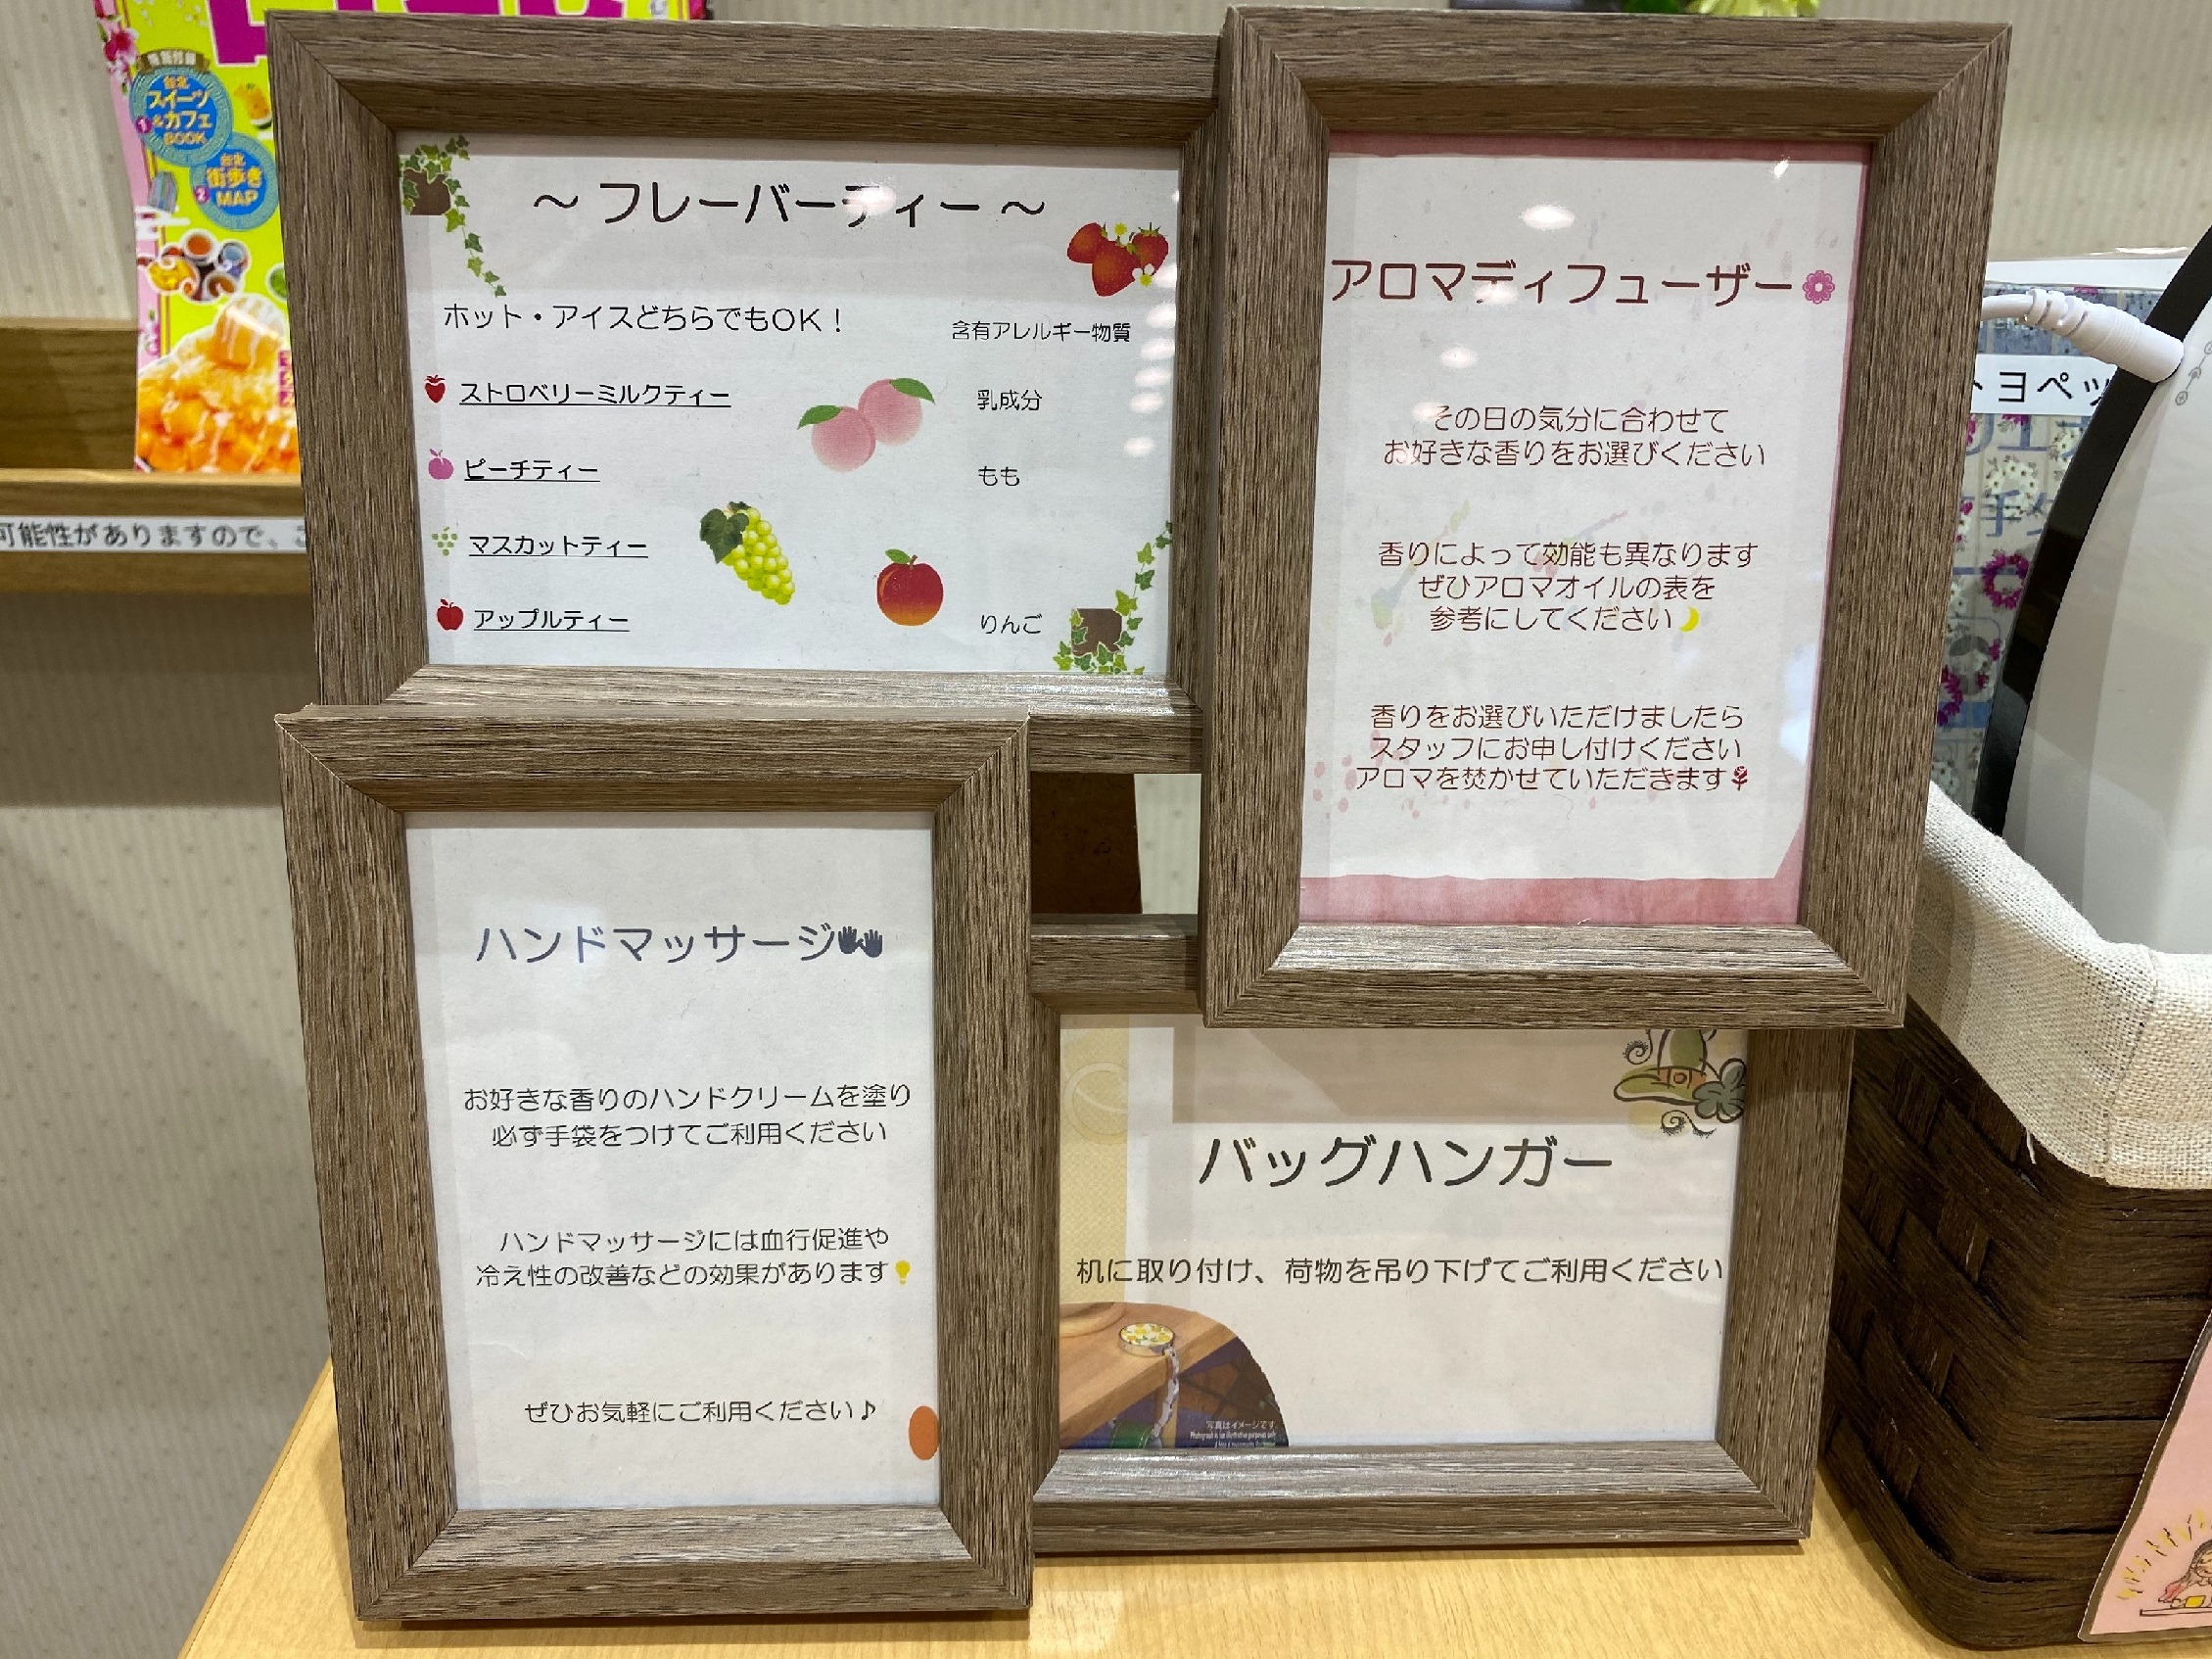 台北
スイーツ
&カフェ
BOOK
1
台北
街歩き
MAP
2
可能性がありますので、
～ フレーバーティー ～
ホット・アイスどちらでもOK！
含有アレルギー物質
ストロベリーミルクティー
乳成分
ピーチティー
もも
マスカットティー
アップルティー
りんご
アロマディフューザー
その日の気分に合わせて
お好きな香りをお選びください
香りによって効能も異なります
ぜひアロマオイルの表を
参考にしてください
香りをお選びいただけましたら
スタッフにお申し付けください
アロマを焚かせていただきます
トヨペッ
ハンドマッサージ
お好きな香りのハンドクリームを塗り
必ず手袋をつけてご利用ください
ハンドマッサージには血行促進や
冷え性の改善などの効果があります
ぜひお気軽にご利用ください♪
バッグハンガー
机に取り付け、荷物を吊り下げてご利用ください
写真はイメージです